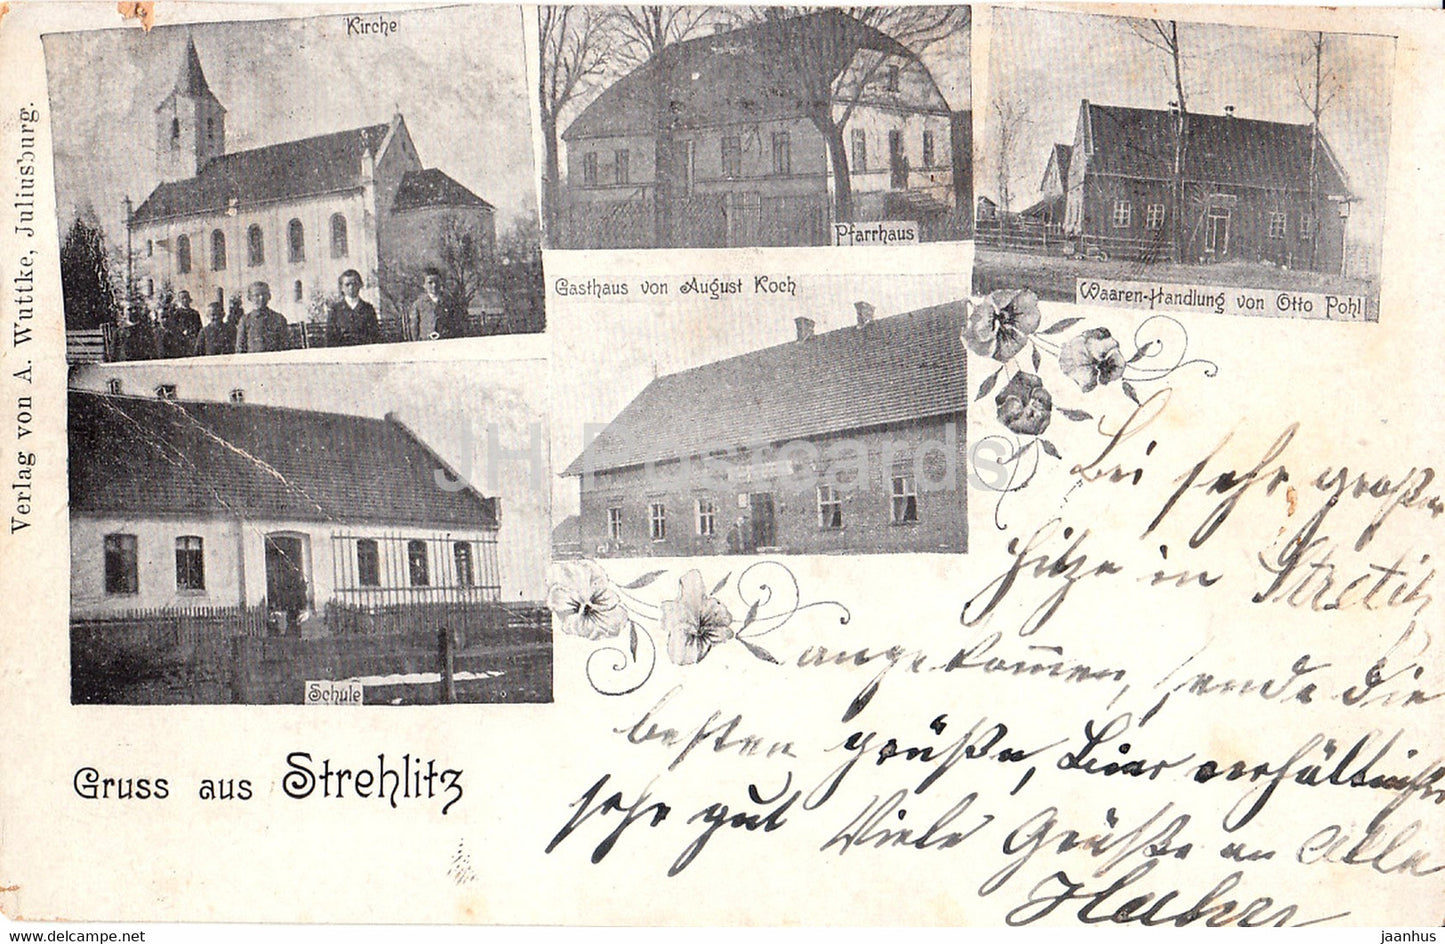 Kirche
Pfarrhaus
Waaren-Handlung von Otto Pohl
Gasthaus von August Koch
Schule
Gruss aus Strehlitz
Verlag von A. Wuttke, Juliusburg.
JH Postcards
Bei sehr großer
Hitze in
angekom̄en, sende die
besten grüße,
sehr gut Viele Grüße an Alle
jaanhus